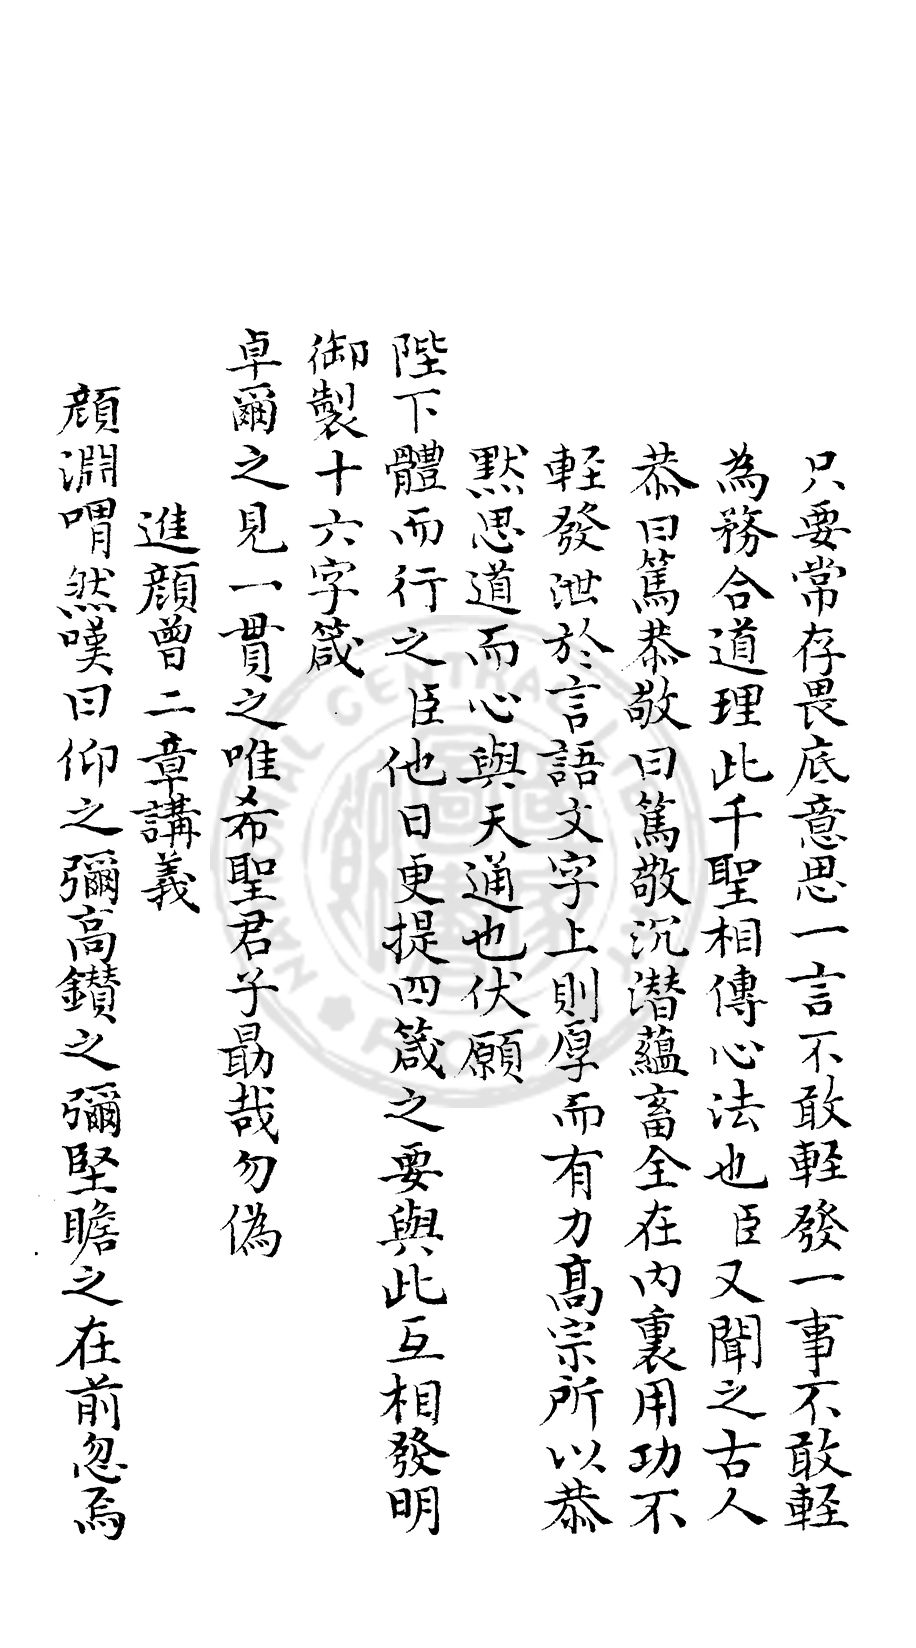 只要常存畏底意思一言不敢輕發一事不敢輕
為務合道理此千聖相傳心法也臣又聞之古人
恭曰篤恭敬曰篤敬沉潛蘊畜全在內裏用功不
輕發泄於言語文字上則厚而有力高宗所以恭
默思道而心與天通也伏願
陛下體而行之臣他日更提四箴之要與此互相發明
御製十六字箴
卓爾之見一貫之唯希聖君子勗哉勿偽
進顏曾二章講義
顏淵喟然嘆曰仰之彌高鑽之彌堅瞻之在前忽焉
NATIONAL CENTRAL LIBRARY